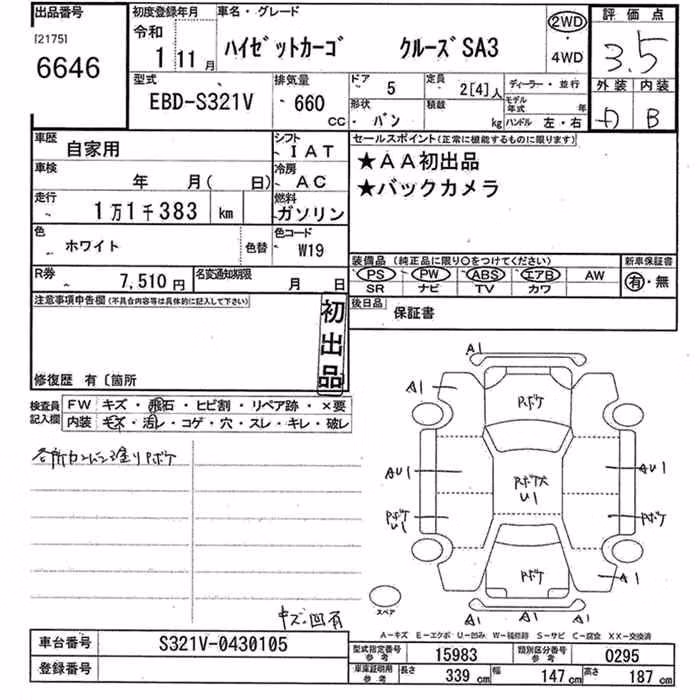 出品番号
[2175]
6646
初度登録年月
令和
1 11月
車名・グレード
ハイゼットカーゴ クルーズSA3
2WD
・
4WD
評価点
3.5
外装 内装
B
型式
EBD-S321V
排気量
660
CC
ドア
5
形状
バン
定員
2[4]人
積載
kg
ディーラー・並行
モデル年式 年
ハンドル 左・右
車歴
自家用
シフト
IAT
車検
年 月( 日)
冷房
AC
走行
1万1千383 km
燃料
ガソリン
色
ホワイト
色替
色コード
W19
R券
7,510円
名変通知期限
月 日
セールスポイント(正常に機能するものに限ります)
★AA初出品
★バックカメラ
装備品 (純正品に限り○をつけてください)
新車保証書
PS PW ABS エアB AW
SR ナビ TV カワ
有・無
後日品
保証書
注意事項申告欄(不具合内容等は具体的に記入して下さい)
初出品
修復歴 有〔箇所
検査員記入欄
FW キズ・飛石・ヒビ割・リペア跡・×要
内装 キズ・汚レ・コゲ・穴・スレ・キレ・破レ
塗りPボケ
キズ凹有
A1
A1
Pボケ
AU1
Pボケ大
U1
AU1
Pボケ
U1
Pボケ
Pボケ
A1
A1 A1 A1
スペア
A-キズ E-エクボ U-凹み W-補修跡 S-サビ C-腐食 XX-交換済
車台番号
S321V-0430105
登録番号
型式指定番号
参考
15983
類別区分番号
参考
0295
車庫証明用
参考
長さ 339 cm 幅 147 cm 高さ 187 cm